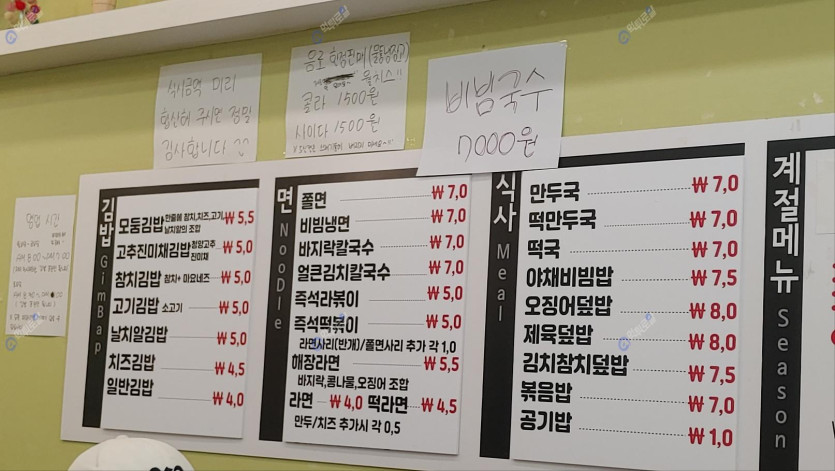 식사금액 미리
합산해 주시면 정말
감사합니다
음료
콜라 1500원
사이다 1500원
비빔국수
7000원
영업 시간
김밥
GimBap
모둠김밥 한줄에 참치,치즈,고기 ₩ 5,5
날치알의 조합
고추진미채김밥 청양고추 ₩ 5,0
진미채
참치김밥 참치+마요네즈 ₩ 5,0
고기김밥 소고기 ₩ 5,0
날치알김밥 ₩ 5,0
치즈김밥 ₩ 4,5
일반김밥 ₩ 4,0
면
NooDle
쫄면 ₩ 7,0
비빔냉면 ₩ 7,0
바지락칼국수 ₩ 7,0
얼큰김치칼국수 ₩ 7,0
즉석라볶이 ₩ 5,0
즉석떡볶이 ₩ 5,0
라면사리(반개)/쫄면사리 추가 각 1,0
해장라면 ₩ 5,5
바지락,콩나물,오징어 조합
라면 ₩ 4,0 떡라면 ₩ 4,5
만두/치즈 추가시 각 0,5
식사
Meal
만두국 ₩ 7,0
떡만두국 ₩ 7,0
떡국 ₩ 7,0
야채비빔밥 ₩ 7,5
오징어덮밥 ₩ 8,0
제육덮밥 ₩ 8,0
김치참치덮밥 ₩ 7,5
볶음밥 ₩ 7,0
공기밥 ₩ 1,0
계절메뉴
Season